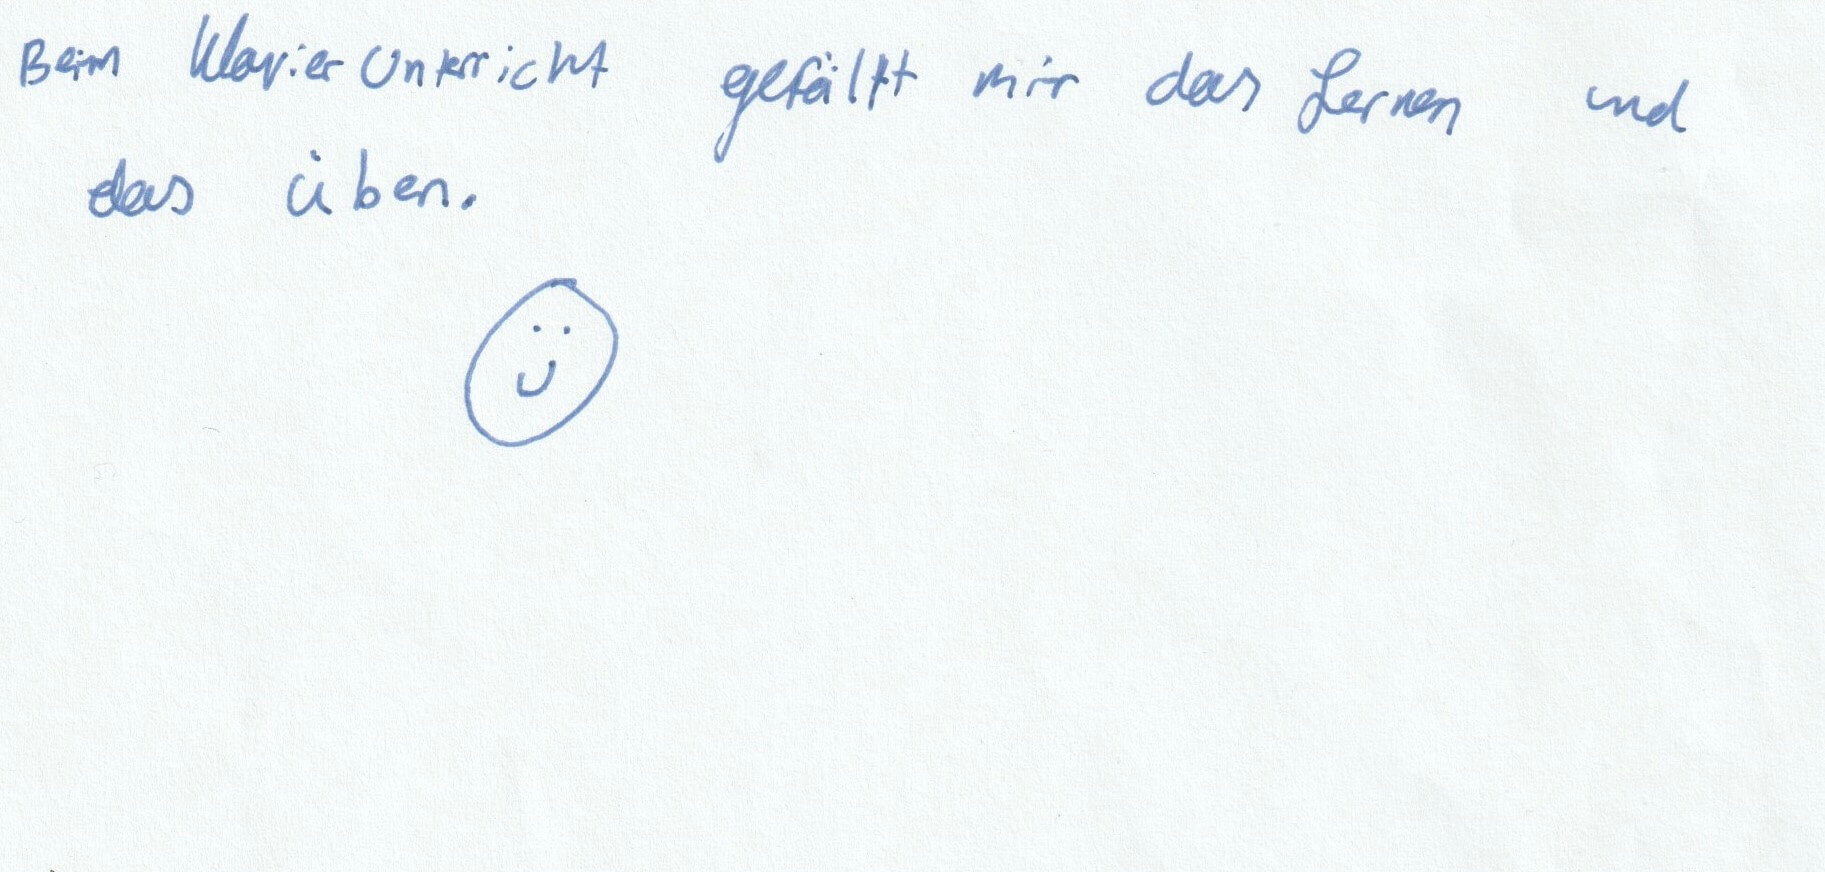 Beim Klavier Unterricht gefällt mir das Lernen und
das üben.